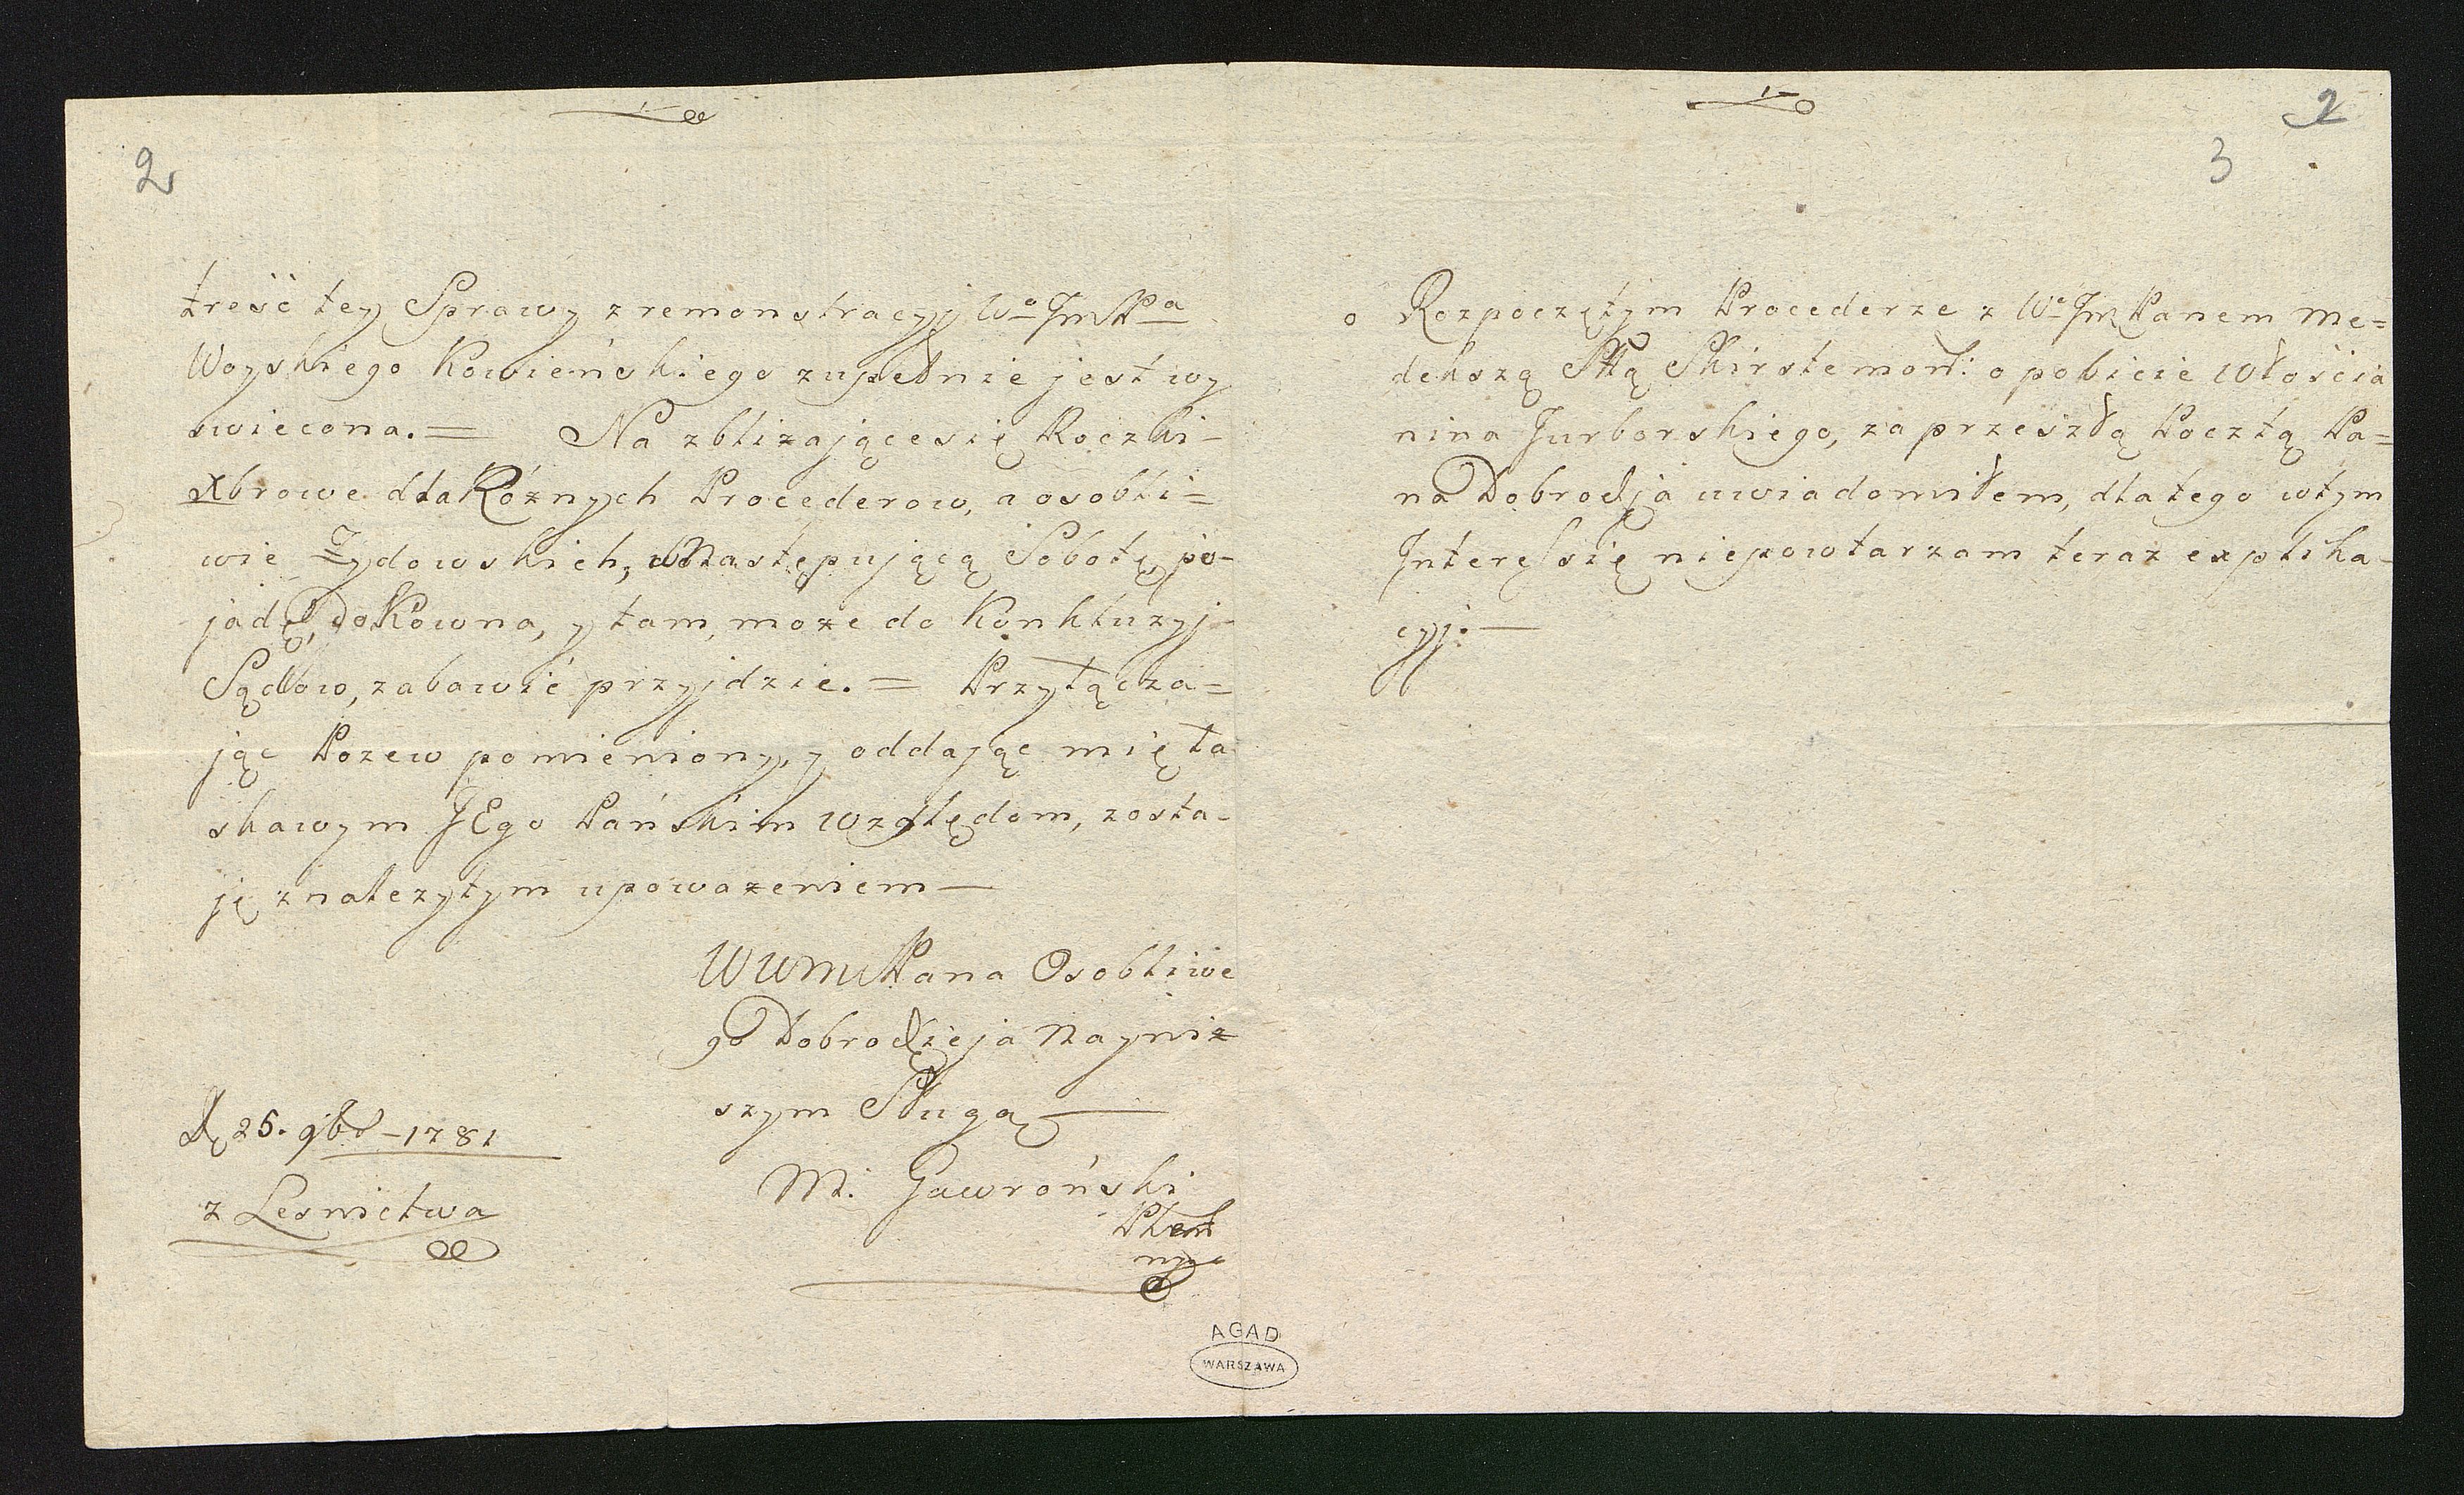 2
treść tey Sprawy z remonstracyj Wo JmPa
Woyskiego Kowieńskiego zupełnie jest wy
swiecona.= Na zbliżające się Roczki-
Xbrowe dla Róźnych Procederow, a osobli=
wie Zydowskich, w Następującą Sobotę, po-
jadę, do Kowna, y tam, może do Konkluzyj-
Sądow, zabawić przyjdzie.= Przyłącza=
jąc Pozew pomieniony, y oddając mię ła
skawym JEgo Pańskim Względom, zosta-
ję z należytym upoważeniem—
WWmPana Osobliwe
go Dobrodzieja Nayniż
szym Sługą—
M. Gawroński
D. 25. 9br—1781
z Lesnictwa
2
3
o Rozpoczętym Procederze z Wo Jm Panem Me=
dekszą Sttą Skirstemoń: o pobicie Włościa
nina Jurborskiego, za przeszłą Pocztą Pa=
na Dobrodzja uwiadomiłem, dla tego w tym
Interessie niepowtarzam teraz explika-
cyj.—
AGAD
WARSZAWA